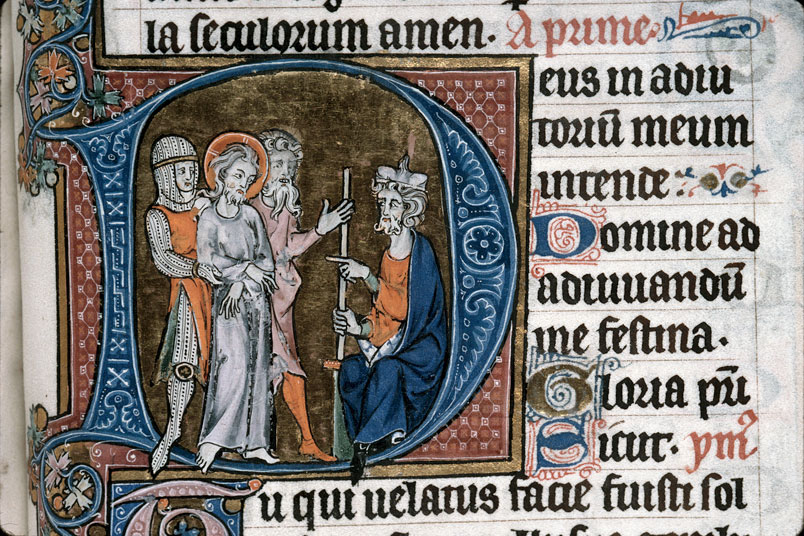 la seculorum amen. A prime.
Deus in adiu
toriū meum
intende:
Domine ad
adiuuandū
me festina.
Gloria pr̄i
Sicut. ymꝰ
Tu qui uelatus facie fuisti sol